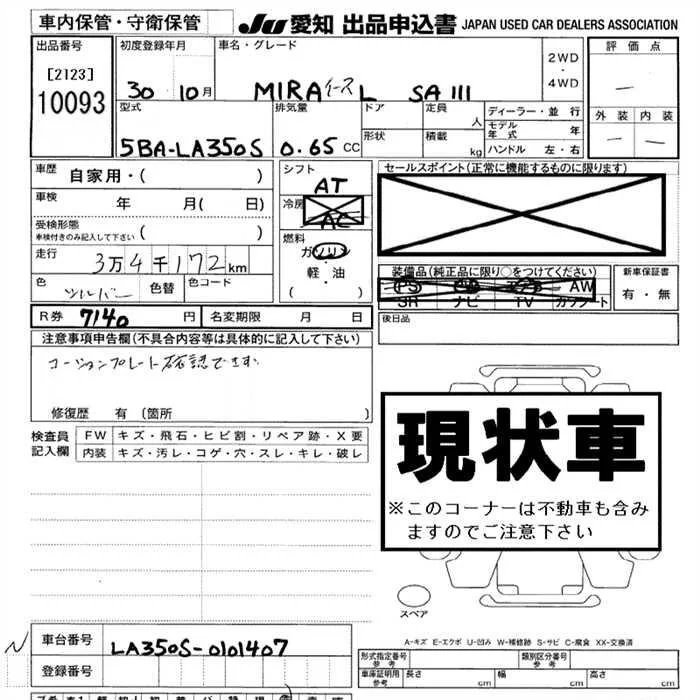 車内保管・守衛保管
JU 愛知 出品申込書 JAPAN USED CAR DEALERS ASSOCIATION
出品番号
[2123]
10093
初度登録年月
30 10月
車名・グレード
MIRAイースL SA III
2WD
・
4WD
評価点
—
外装 内装
— —
型式
5BA-LA350S
排気量
0.65 CC
ドア
形状
定員
人
積載
kg
ディーラー・並行
モデル年式 年
ハンドル 左・右
車歴 自家用・( )
車検 年 月( 日)
受検形態
車検付きのみ記入して下さい ( )
走行 3万4千172km
色 シルバー 色替 色コード
シフト
AT
冷房
AC
燃料
ガソリン
・
軽・油
( )
セールスポイント(正常に機能するものに限ります)
装備品(純正品に限り○をつけてください)
PS AW
SR ナビ TV カワシート
新車保証書
有・無
後日品
R券 7140 円 名変期限 月 日
注意事項申告欄(不具合内容等は具体的に記入して下さい)
コーションプレート確認できず
修復歴 有(箇所 )
検査員
記入欄
FW キズ・飛石・ヒビ割・リペア跡・X要
内装 キズ・汚レ・コゲ・穴・スレ・キレ・破レ
現状車
※このコーナーは不動車も含み
ますのでご注意下さい
スペア
A-キズ E-エクボ U-凹み W-補修跡 S-サビ C-腐食 XX-交換済
車台番号 LA350S-0101407
登録番号
形式指定番号
参考
類別区分番号
参考
車庫証明用
参考
長さ cm 幅 cm 高さ cm